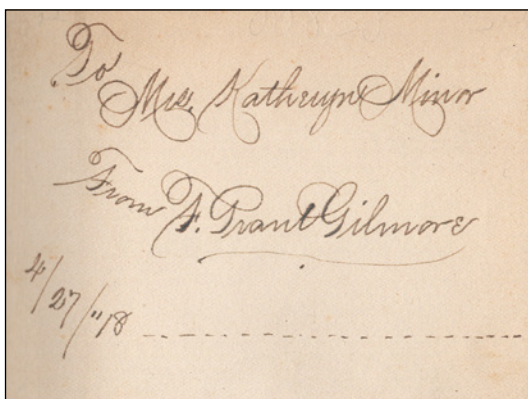 To
Mrs. Kathryn Minor
From F. Grant Gilmore
4/27/"18